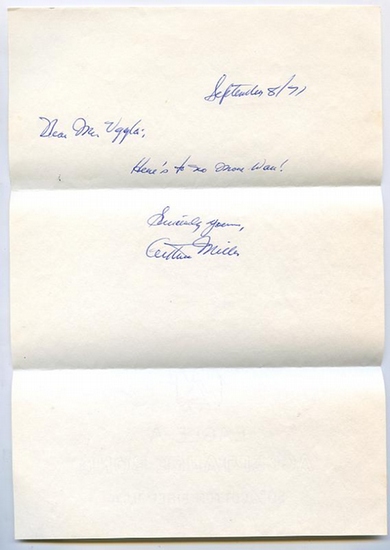 September 8/71
Dear Mr. Uggla;
Here's to no more War!
Sincerely yours,
Arthur Miller